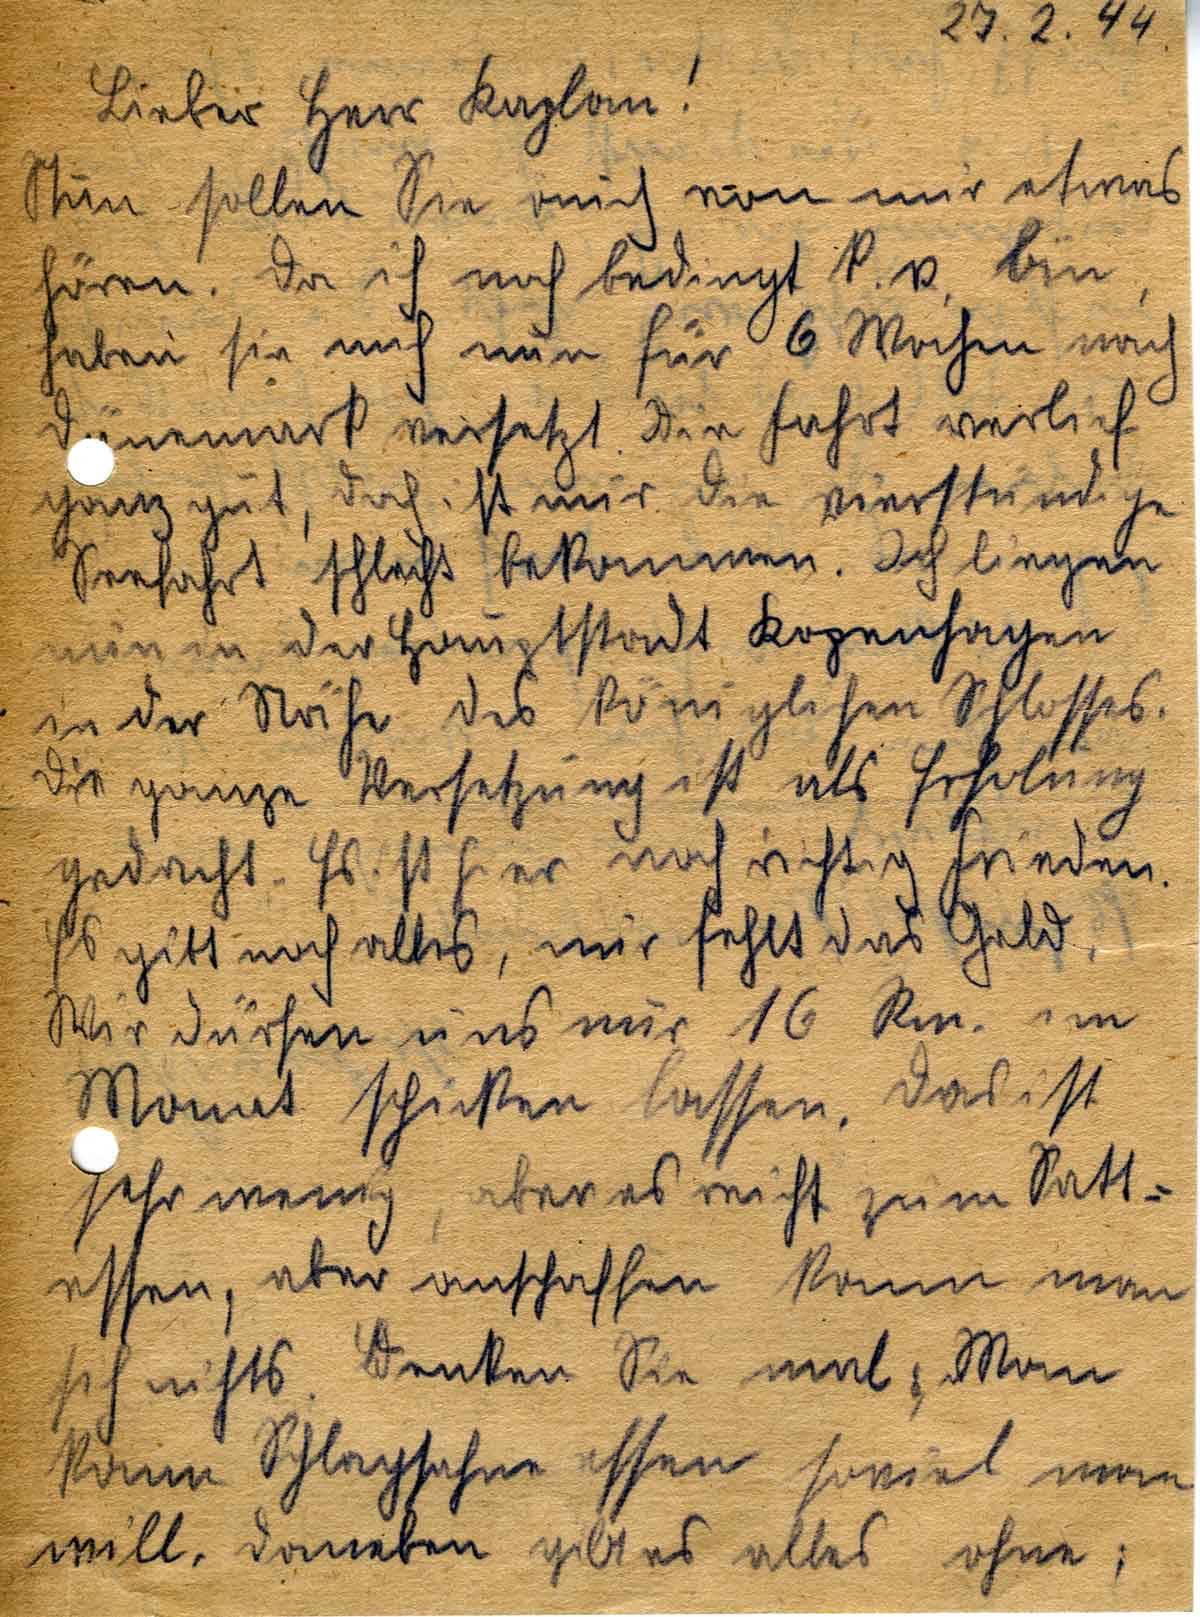 27. 2. 44.
Lieber Herr Kaplan!
Nun sollen Sie auch von mir etwas
hören. Da ich noch bedingt k.v. bin,
haben sie mich nun für 6 Wochen nach
Dänemark versetzt. Die Fahrt verlief
ganz gut, doch ist mir die vierstündige
Seefahrt schlecht bekommen. Ich liegen
nun in der Hauptstadt Kopenhagen
in der Nähe des königlichen Schlosses.
Die ganze Versetzung ist als Erholung
gedacht. Es ist hier noch richtig Frieden.
Es gibt noch alles, mir fehlt das Geld.
Wir dürfen uns nur 16 Rm. im
Monat schicken lassen. Das ist
sehr wenig, aber es reicht zum Satt-
essen, aber anschaffen kann man
sich nichts. Denken Sie mal; Man
kann Schlagsahne essen soviel man
will. Daneben gibt es alles ohne;